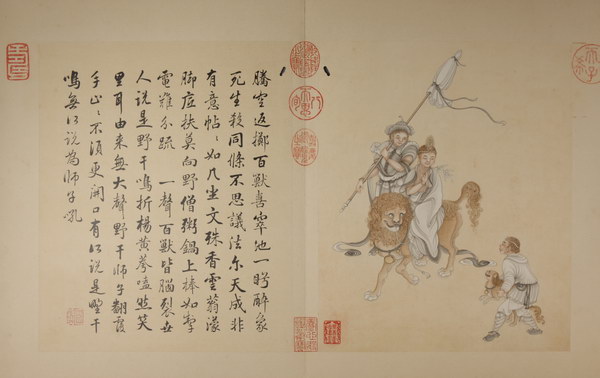 騰空返擲百獸喜窣地一時醉象
死生殺同條不思議法尔天成非
有意帖〻如几坐文殊香雲蓊濛
脚底扶莫向野僧粥鍋上棒如掣
電難分疏 一聲百獸皆腦裂世
人說是野干鳴折楊黃荂嗑然笑
里耳由來無大聲野干師子翻覆
手止〻不須更開口有所說是野干
鳴無所說為師子吼